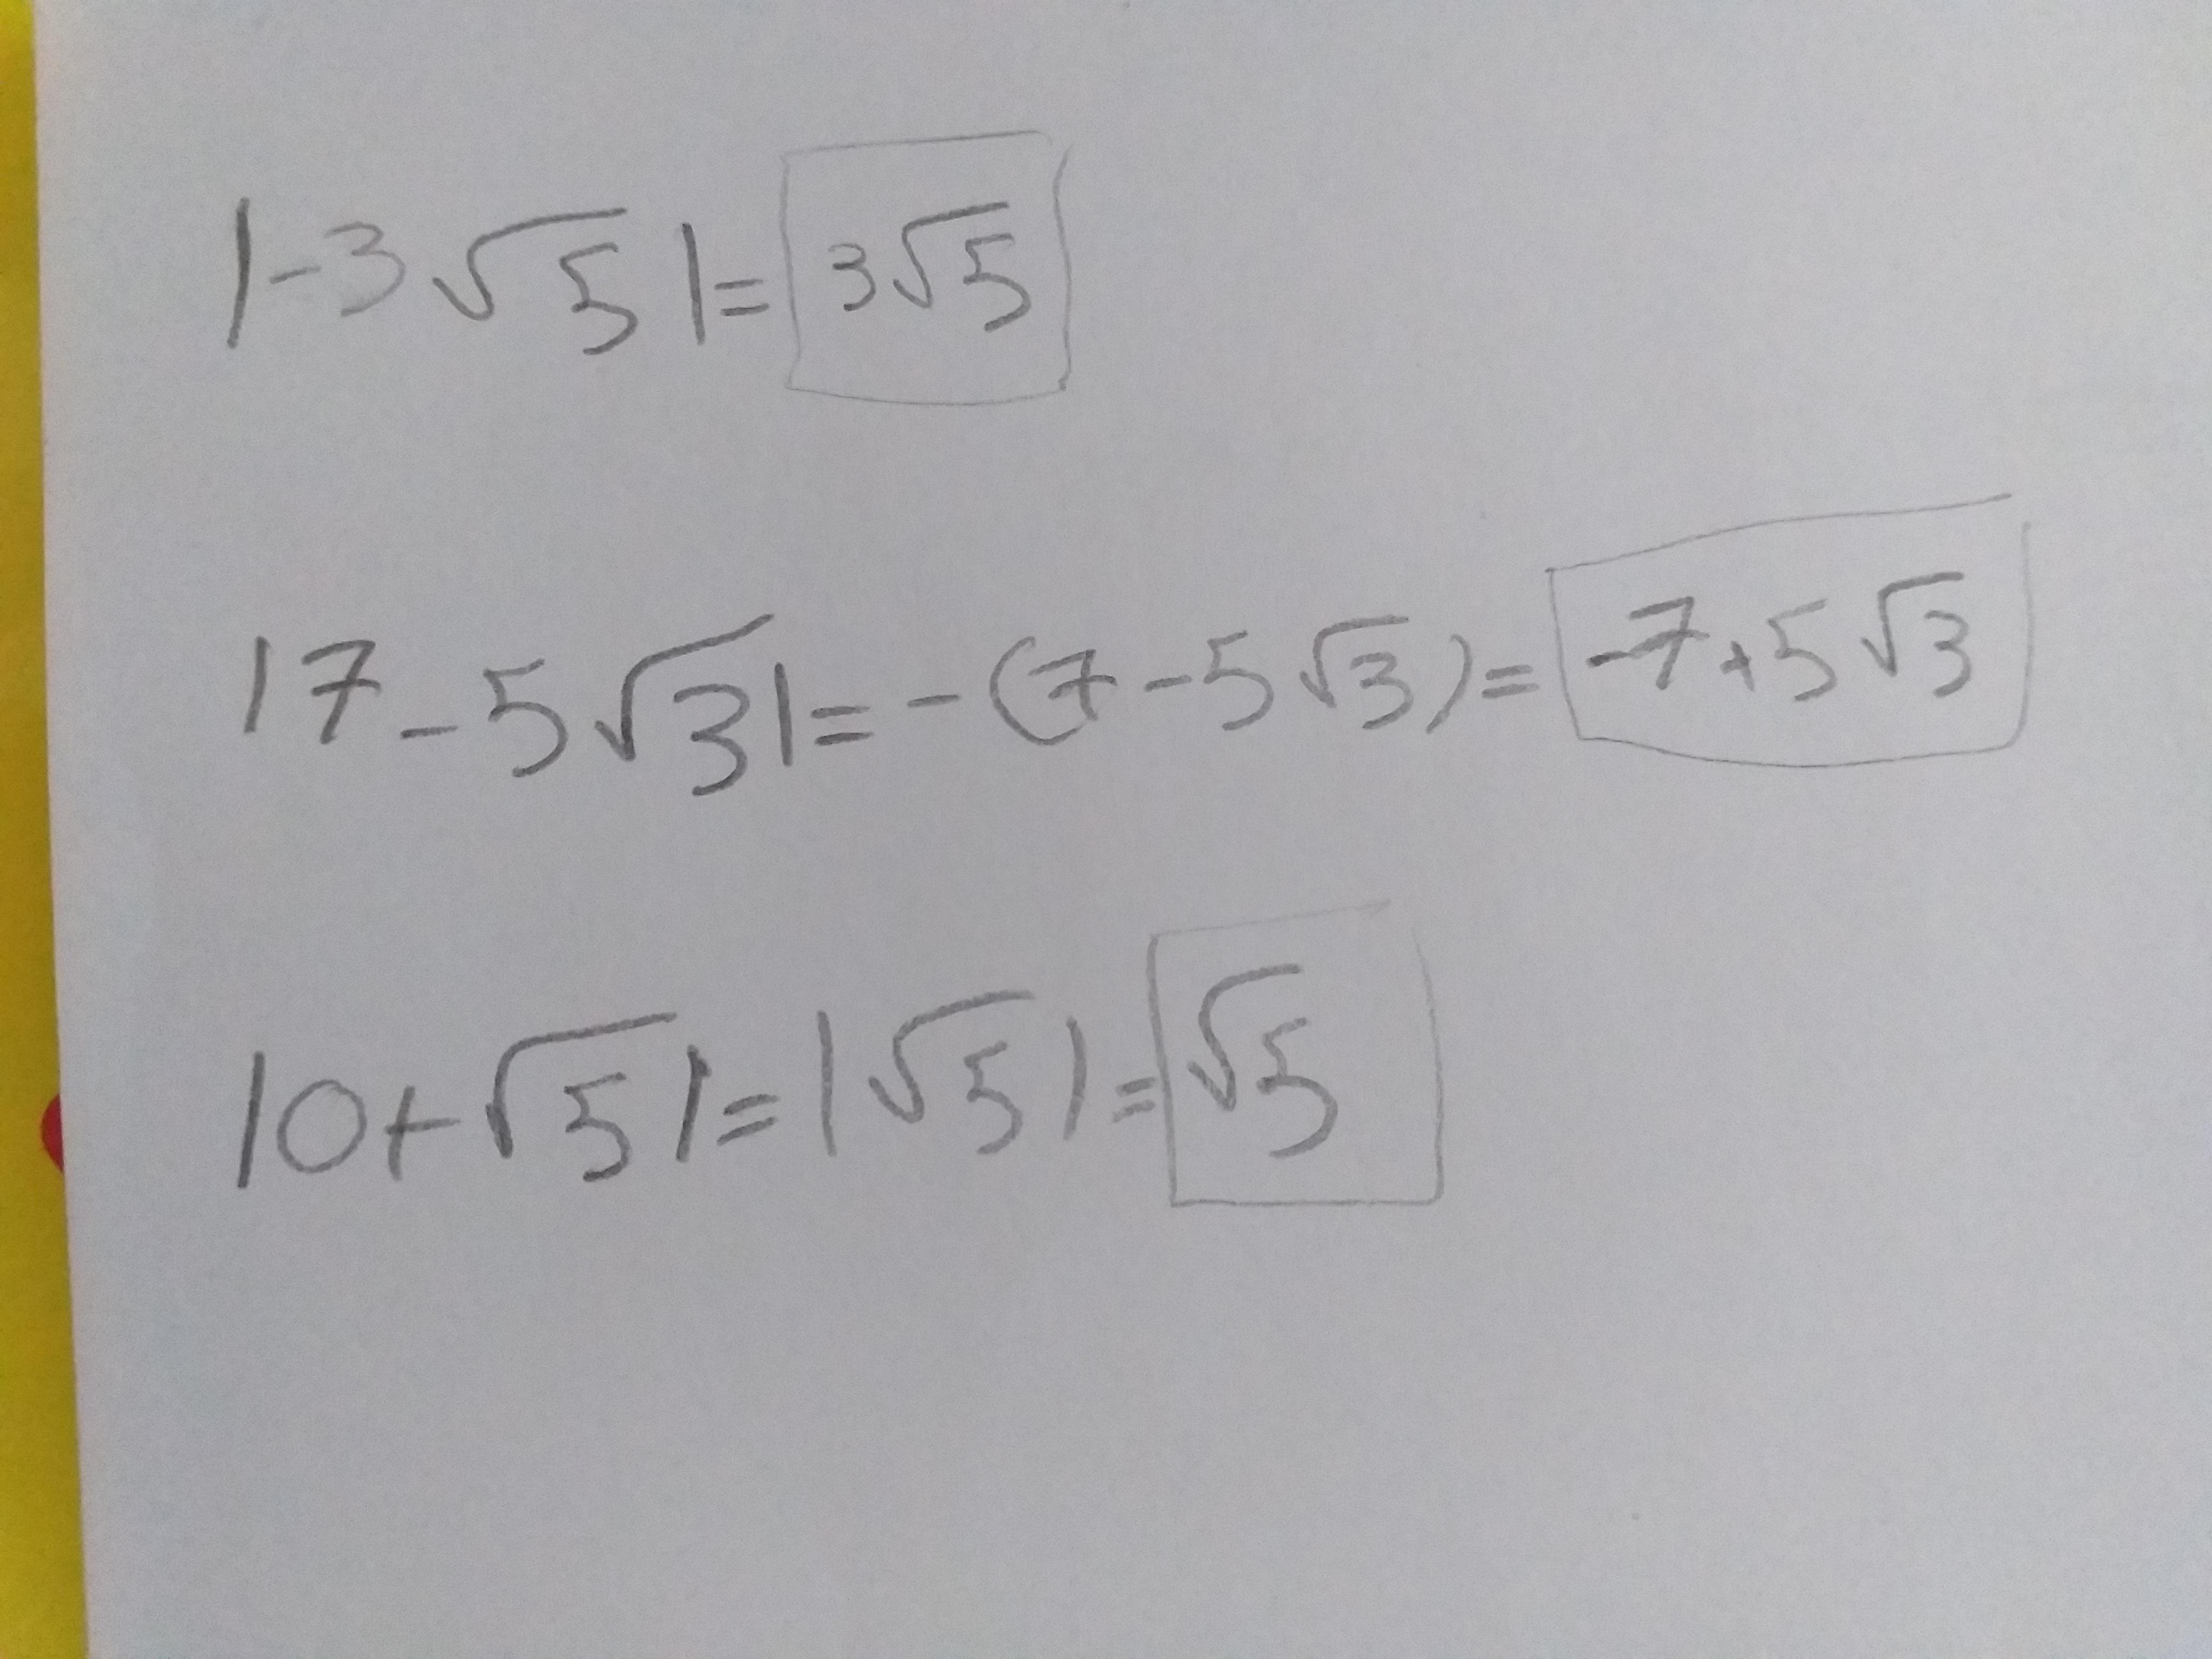 |-3√5|= 3√5
|7-5√3|=-(7-5√3)= -7+5√3
|0+√5|=|√5|= √5